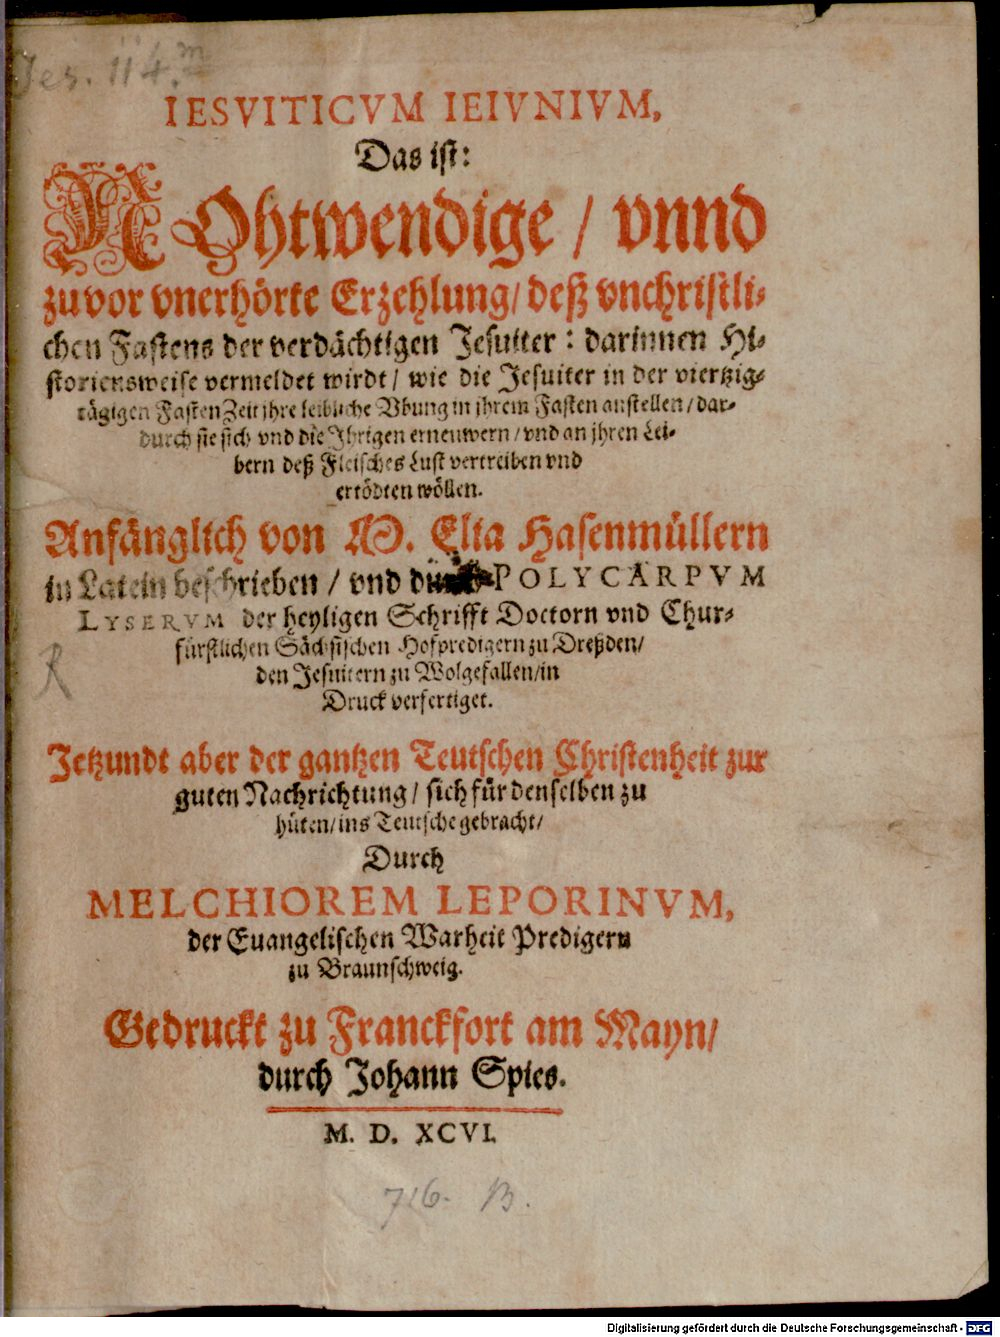 Jes. 114.m
IESVITICVM IEIVNIVM,
Das ist:
NOhtwendige / vnnd
zuvor vnerhörte Erzehlung / deß vnchristli-
chen Fastens der verdächtigen Jesuiter : darinnen Hi-
storiensweise vermeldet wirdt / wie die Jesuiter in der viertzig-
tägigen FastenZeit jhre leibliche Vbung in jhrem Fasten anstellen / dar-
durch sie sich vnd die Jhrigen erneuwern / vnd an jhren Lei-
bern deß Fleisches Lust vertreiben vnd
ertödten wöllen.
Anfänglich von M. Elia Hasenmüllern
in Latein beschrieben / vnd durch POLYCARPVM
LYSERVM der heyligen Schrifft Doctorn vnd Chur-
fürstlichen Sächsischen Hofpredigern zu Dreßden /
den Jesuitern zu Wolgefallen / in
Druck verfertiget.
R
Jetzundt aber der gantzen Teutschen Christenheit zur
guten Nachrichtung / sich für denselben zu
hüten / ins Teutsche gebracht /
Durch
MELCHIOREM LEPORINVM,
der Euangelischen Warheit Predigern
zu Braunschweig.
Gedruckt zu Franckfort am Mayn /
durch Johann Spies.
M. D. XCVI.
716. B.
Digitalisierung gefördert durch die Deutsche Forschungsgemeinschaft - DFG